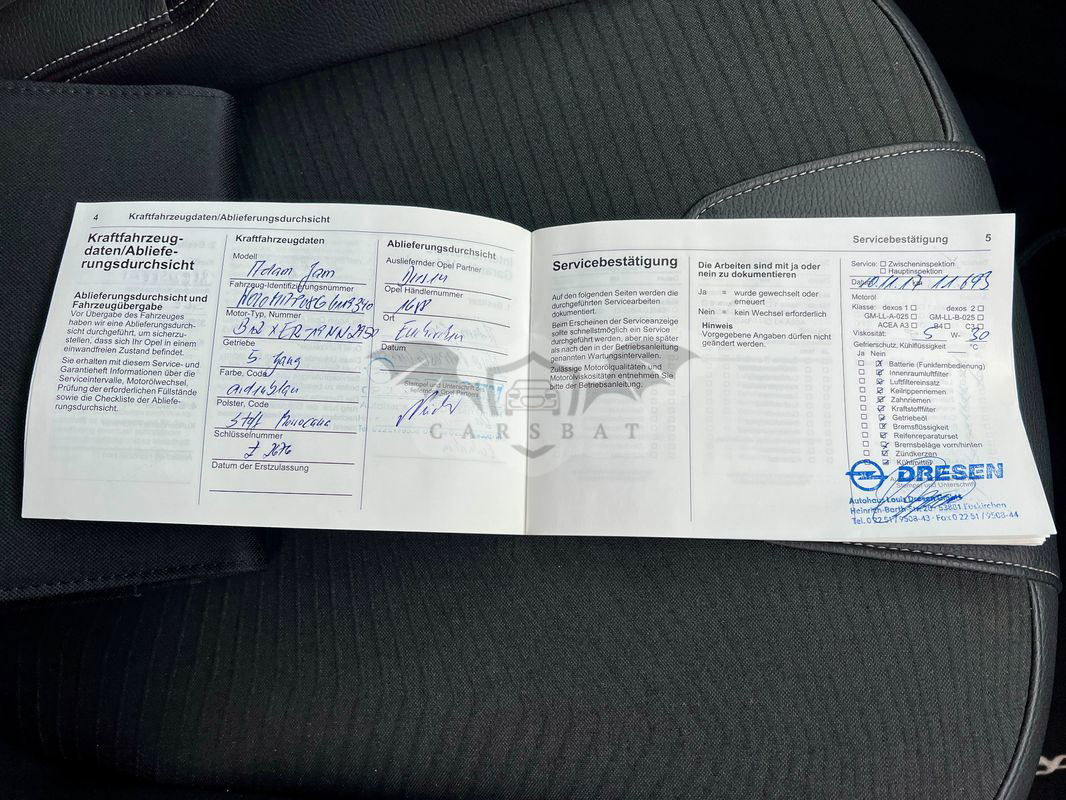 4 Kraftfahrzeugdaten/Ablieferungsdurchsicht
Kraftfahrzeug-
daten/Abliefe-
rungsdurchsicht
Ablieferungsdurchsicht und
Fahrzeugübergabe
Vor Übergabe des Fahrzeuges
haben wir eine Ablieferungsdurch-
sicht durchgeführt, um sicherzu-
stellen, dass sich Ihr Opel in einem
einwandfreien Zustand befindet.
Sie erhalten mit diesem Service- und
Garantieheft Informationen über die
Serviceintervalle, Motorölwechsel,
Prüfung der erforderlichen Füllstände
sowie die Checkliste der Abliefe-
rungsdurchsicht.
Kraftfahrzeugdaten
Modell
Adam Jam
Fahrzeug-Identifizierungsnummer
Motor-Typ, Nummer
Getriebe
5. Gang
Farbe, Code
Polster, Code
Stoff
Schlüsselnummer
Datum der Erstzulassung
Ablieferungsdurchsicht
Ausliefernder Opel Partner
Opel Händlernummer
Ort
Datum
Stempel und Unterschrift
CARSBAT
Servicebestätigung 5
Servicebestätigung
Auf den folgenden Seiten werden die
durchgeführten Servicearbeiten
dokumentiert.
Beim Erscheinen der Serviceanzeige
sollte schnellstmöglich ein Service
durchgeführt werden, aber nie später
als nach den in der Betriebsanleitung
genannten Wartungsintervallen.
Zulässige Motorölqualitäten und
Motorölviskositäten entnehmen Sie
bitte der Betriebsanleitung.
Die Arbeiten sind mit ja oder
nein zu dokumentieren
Ja = wurde gewechselt oder
erneuert
Nein = kein Wechsel erforderlich
Hinweis
Vorgegebene Angaben dürfen nicht
geändert werden.
Service: Zwischeninspektion
Hauptinspektion
Datum km 11693
Motoröl
Klasse: dexos 1 dexos 2
GM-LL-A-025 GM-LL-B-025
ACEA A3 B4 C3
Viskosität: 5 W- 30
Gefrierschutz, Kühlflüssigkeit °C
Ja Nein
Batterie (Funkfernbedienung)
Innenraumluftfilter
Luftfiltereinsatz
Keilrippenriemen
Zahnriemen
Kraftstofffilter
Getriebeöl
Bremsflüssigkeit
Reifenreparaturset
Bremsbeläge vorn/hinten
Zündkerzen
Kühlmittel
DRESEN
Stempel und Unterschrift
Autohaus Louis Dresen GmbH
Heinrich-Barth-Str. 20 · 53881 Euskirchen
Tel. 0 22 51 / 9508-43 · Fax 0 22 51 / 9508-44